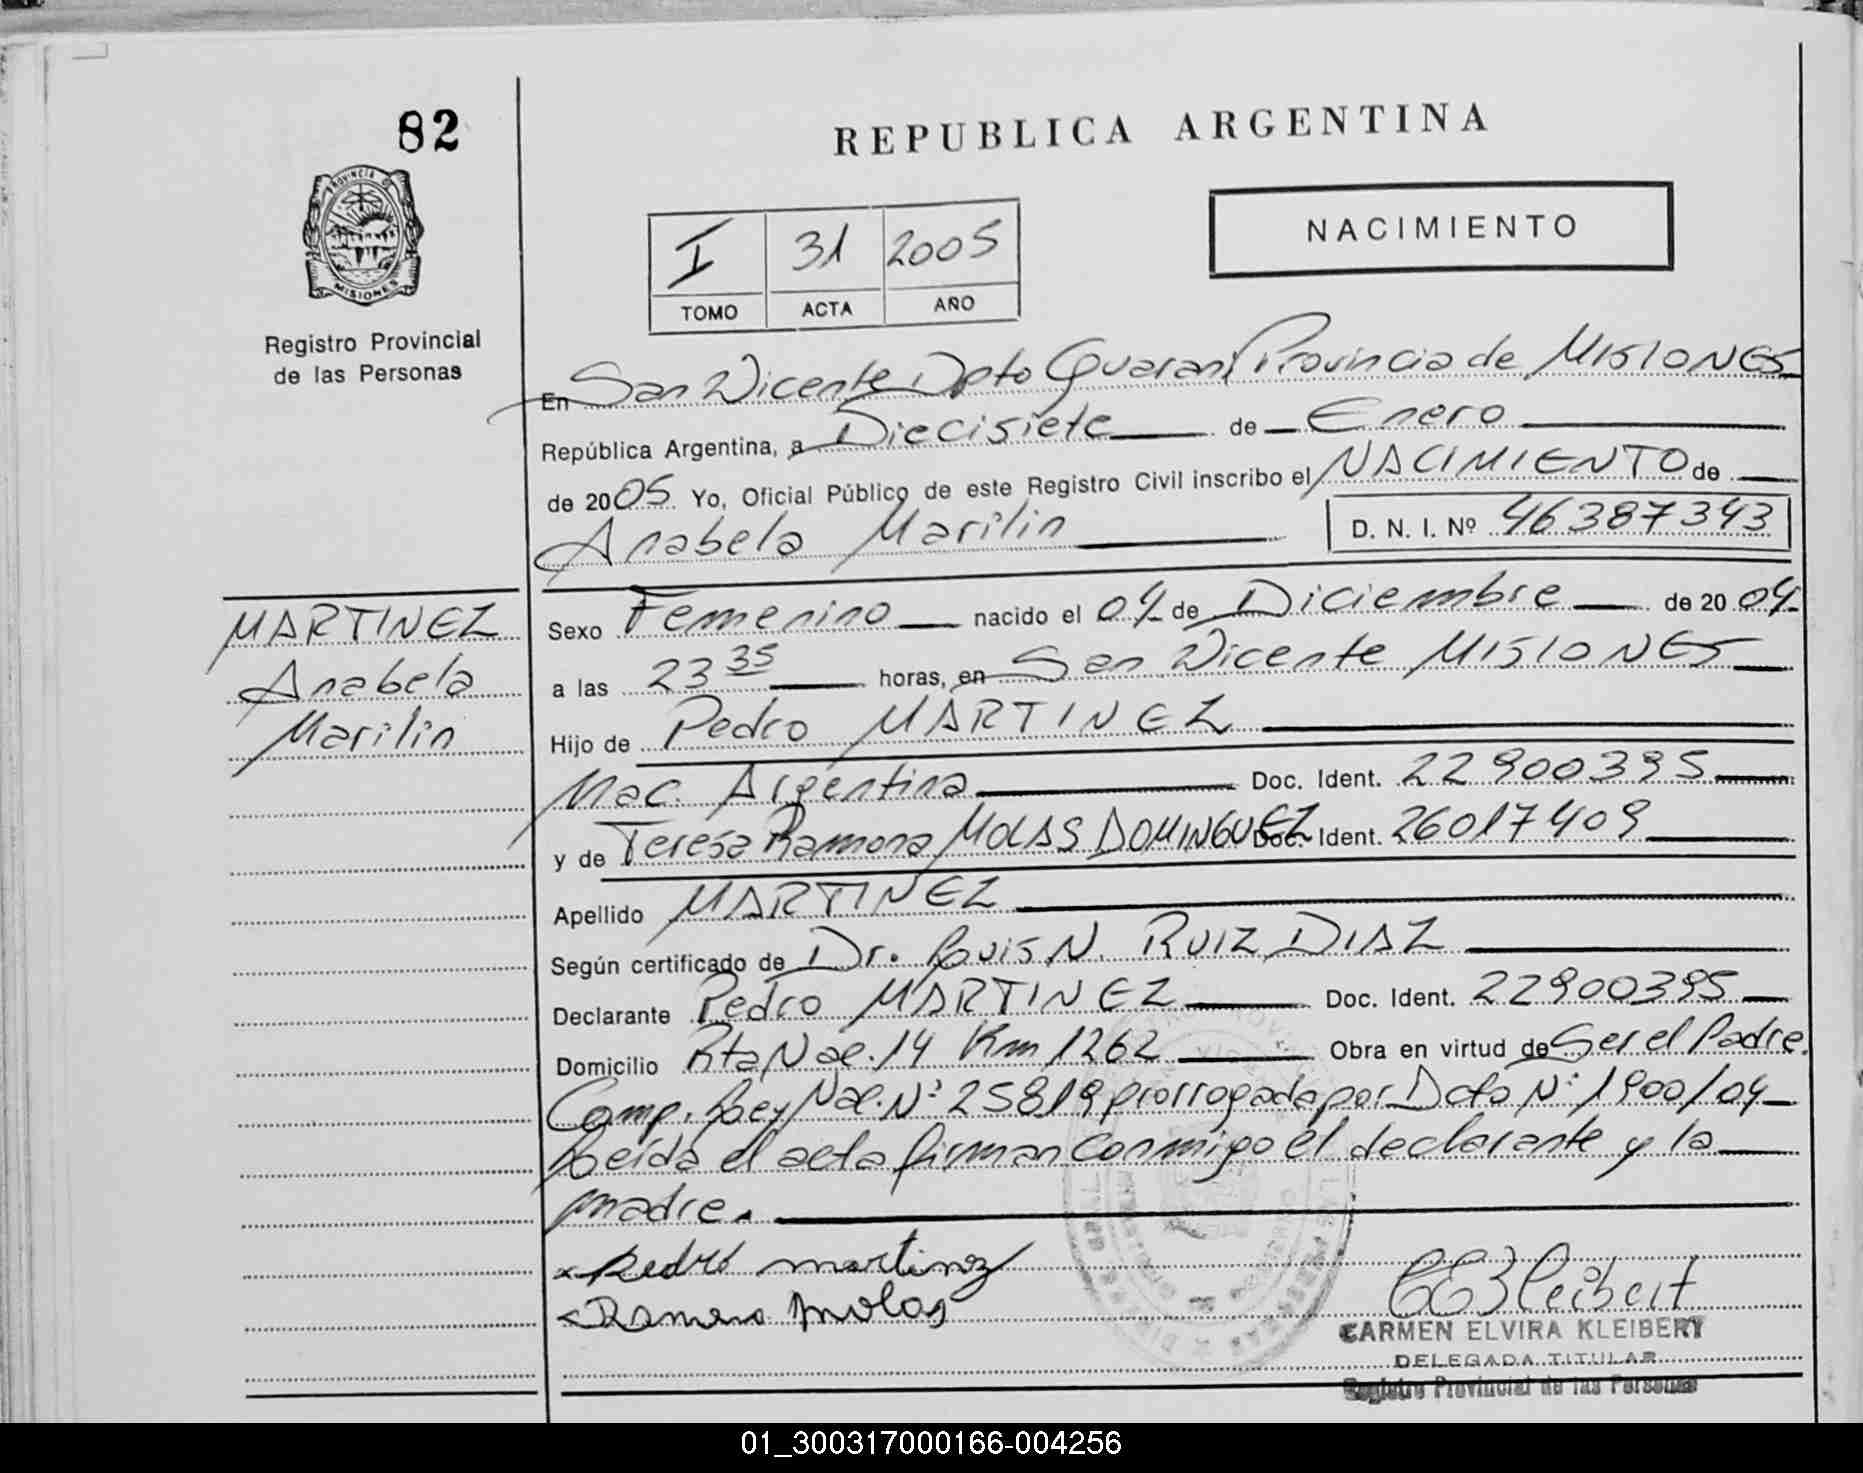 82
REPUBLICA ARGENTINA
PROVINCIA D
MISIONES
Registro Provincial
de las Personas
I 31 2005
TOMO ACTA AÑO
NACIMIENTO
En San Vicente Dpto Guarani Provincia de MISIONES
República Argentina, a Diecisiete de Enero
de 2005 Yo, Oficial Público de este Registro Civil inscribo el NACIMIENTO de
Anabela Marilin D. N. I. Nº 46387343
MARTINEZ
Anabela
Marilin
Sexo Femenino nacido el 04 de Diciembre de 2004
a las 23 35 horas, en San Vicente MISIONES
Hijo de Pedro MARTINEZ
Nac. Argentina Doc. Ident. 22900395
y de Teresa Ramona MOLAS DOMINGUEZ Doc. Ident. 26017409
Apellido MARTINEZ
Según certificado de Dr. Luis N. RUIZ DIAZ
Declarante Pedro MARTINEZ Doc. Ident. 22900395
Domicilio Rta Nac. 14 Km 1262 Obra en virtud de Ser el Padre.
Comp. Ley Nac. Nº 25819 prorrogada por Dcto Nº 1900/04
Leída el acta firman conmigo el declarante y la
madre.
x Pedro martinez
x Ramona molas
CEKleibert
CARMEN ELVIRA KLEIBERT
DELEGADA TITULAR
Registro Provincial de las Personas
01_300317000166-004256